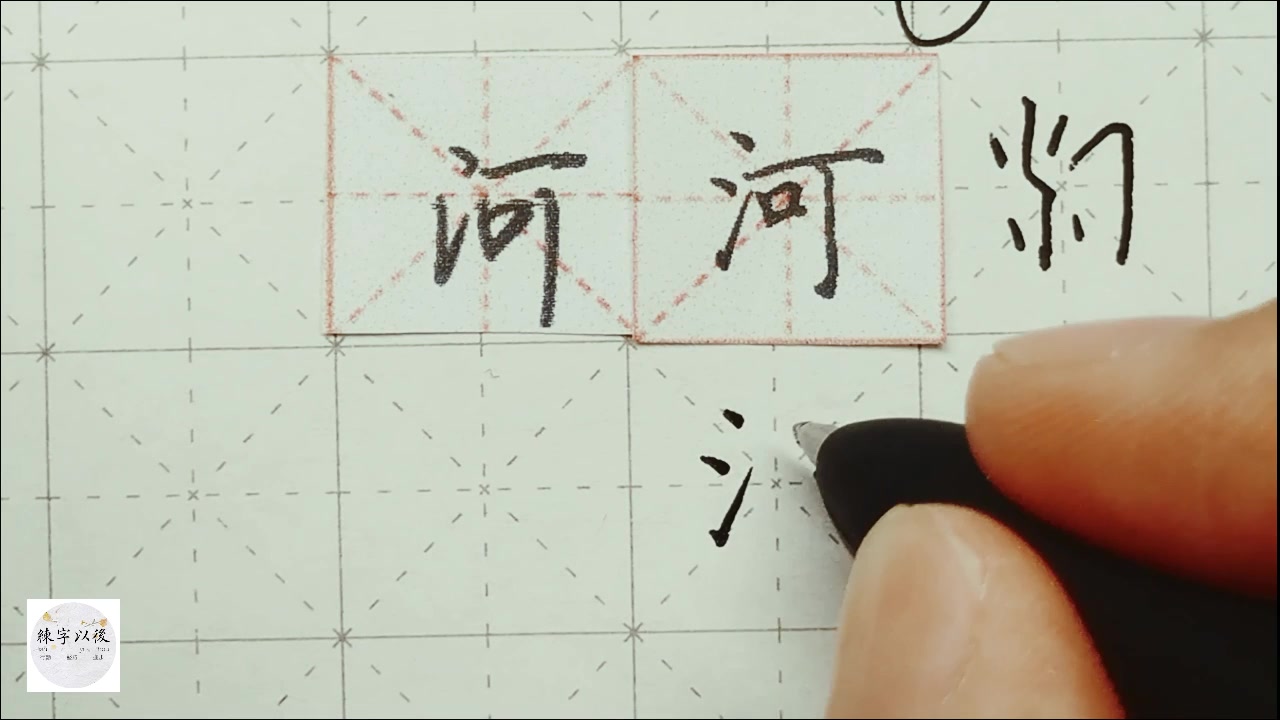 河 河
氵
練字以後